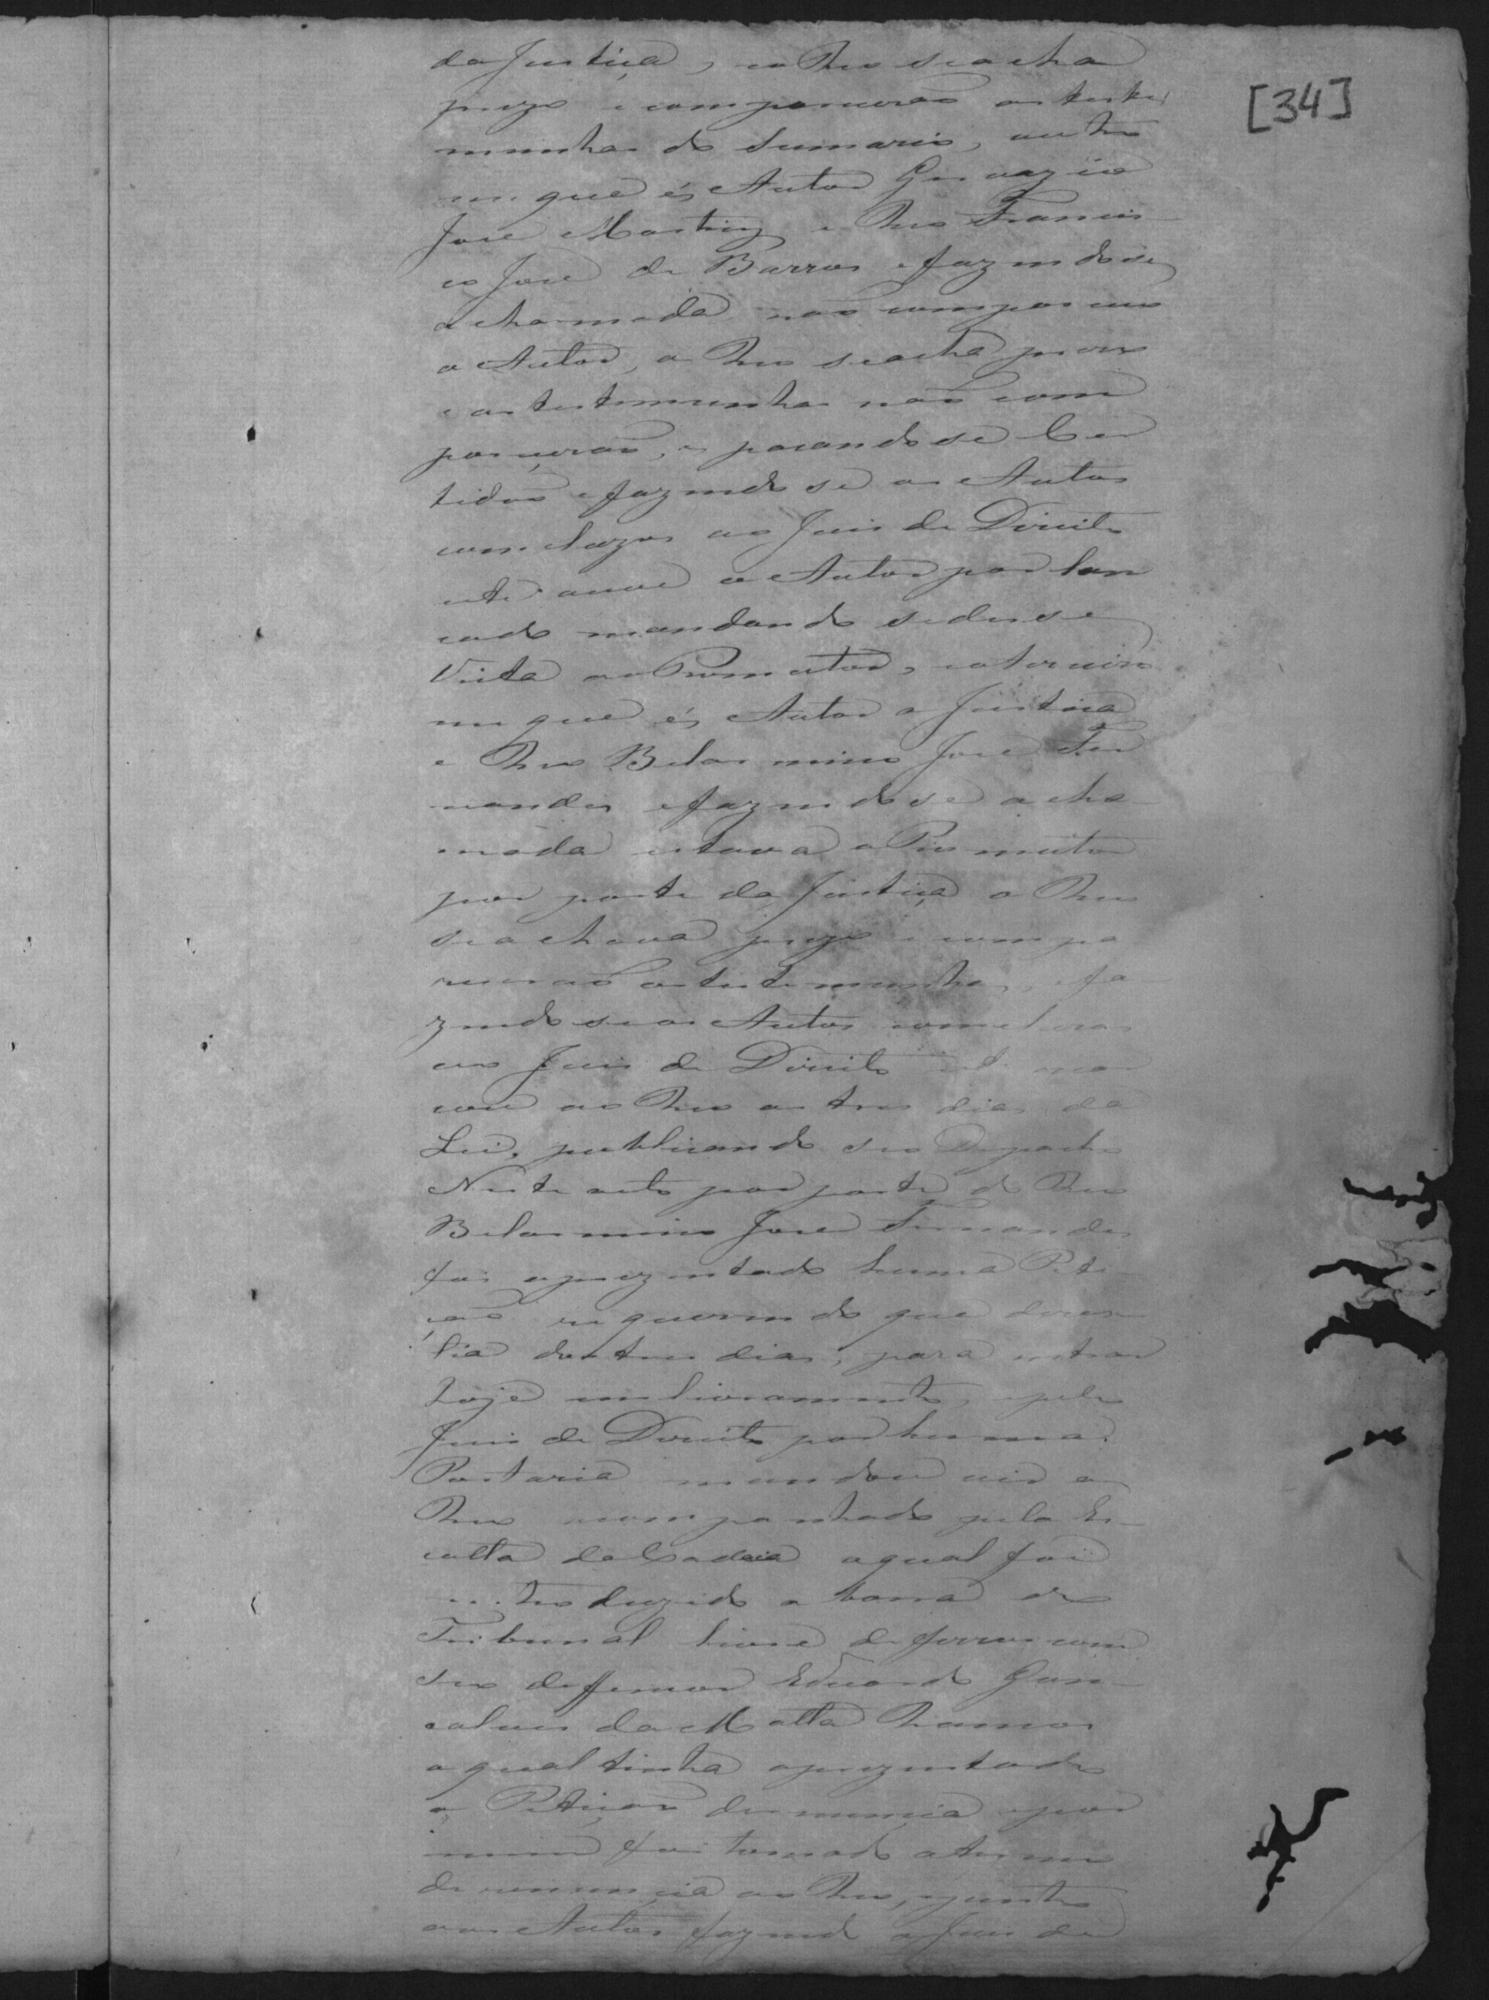 [34]
da Justiça, eo Reo se acha
prezo e comparecerão as teste
munhas do Sumario, outro
em que és Autor Gervazio
Jose Martins e Reo Francis
co Jose de Barros efazendose
achamada não compareceu
o Autor, o Reo se acha prezo
e as testemunhas não com
parecerão, e pasando se Cer
tidão efazendo se os Autos
conclusos ao Juis de Direito
este ouve o Autor por lan
cado mandando sedese
Vista ao Promutor, eo terceiro
em que és Autor a Justiça
e Reo Belarmino Jose Fer
nandes efazendose acha
mada estava o Promutor
por parte da Justiça o Reo
se achava prezo e compa
recerão as testemunhas, efa
zendo se os Autos conclusos
ao Juis de Direito este mar
cou ao Reo os tres dias da
Lei, publicando seo Despacho
Neste acto por parte do Reo
Belarmino Jose Fernandes
foi aprezentado huma Peti
ção requerendo que
dos tres dias, para entrar
hoje em livramento, epelo
Juis de Direito por huma
Portaria mandou vir o
Reo acompanhado pela Es
colta da Cadeia oqual foi
introduzido a barra do
Tribunal livre de ferros com
seo deffensor Eduardo Gon
calves da Matta Ramos
oqual tinha aprezentado
a Petição de renuncia epor
mim foi tomado o termo
de renuncia ao Reo, ejunto
aos Autos fazendo o Juis de